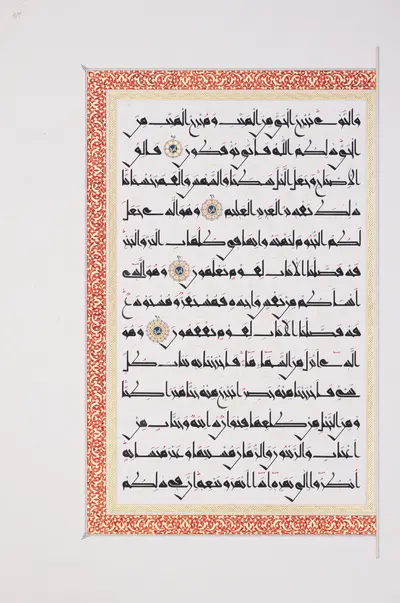 والنوى يخرج الحي من الميت ومخرج الميت من
الحي ذلكم الله فأنى تؤفكون فالق
الإصباح وجعل الليل سكنا والشمس والقمر حسبانا
ذلك تقدير العزيز العليم وهو الذي جعل
لكم النجوم لتهتدوا بها في ظلمات البر والبحر
قد فصلنا الآيات لقوم يعلمون وهو الذي
أنشأكم من نفس واحدة فمستقر ومستودع
قد فصلنا الآيات لقوم يفقهون وهو
الذي أنزل من السماء ماء فأخرجنا به نبات كل
شيء فأخرجنا منه خضرا نخرج منه حبا متراكبا
ومن النخل من طلعها قنوان دانية وجنات من
أعناب والزيتون والرمان مشتبها وغير متشابه
انظروا إلى ثمره إذا أثمر وينعه إن في ذلكم